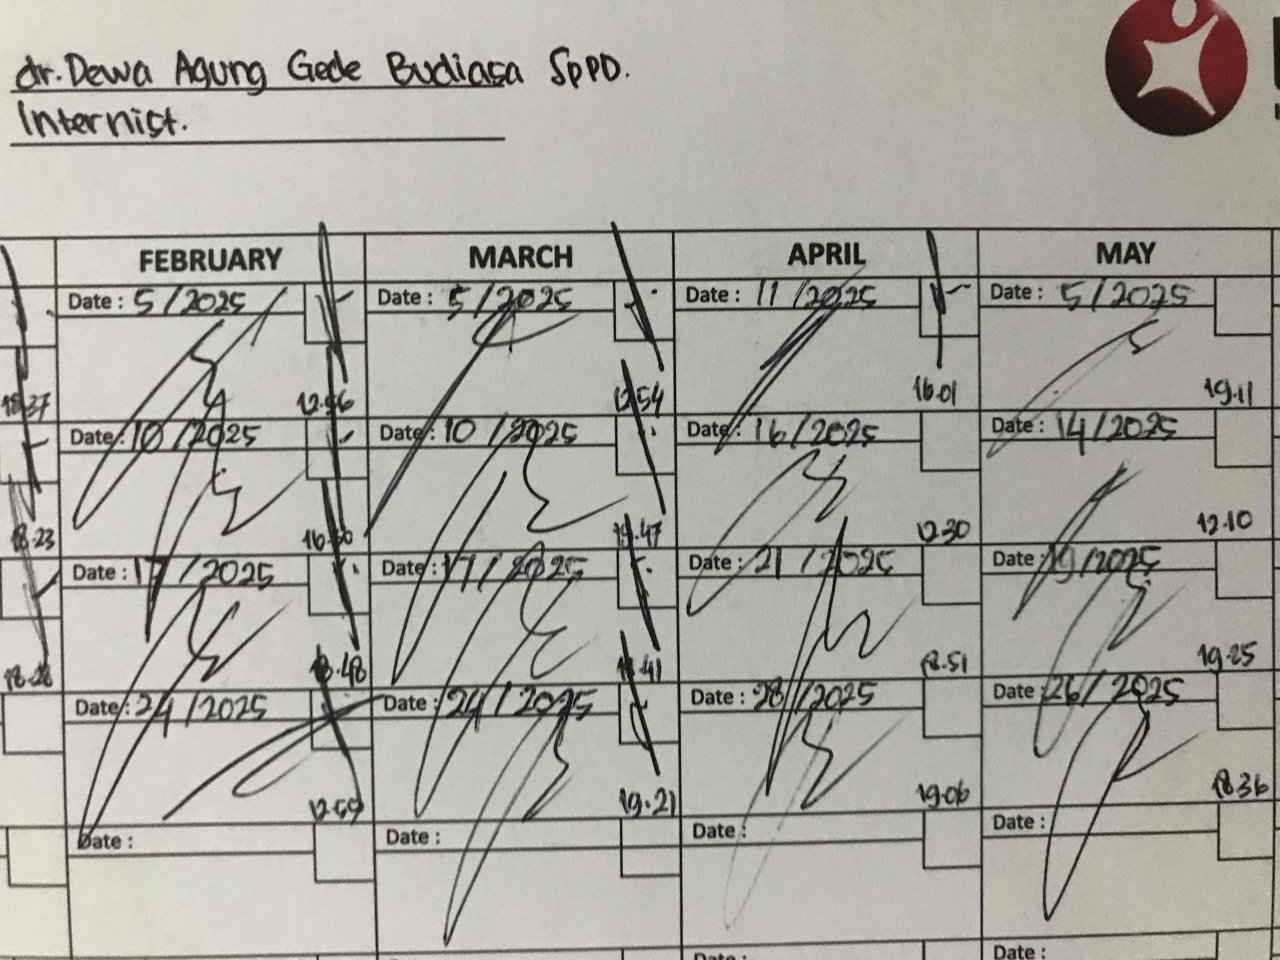 dr. Dewa Agung Gede Budiasa SpPD.
Internist.
FEBRUARY MARCH APRIL MAY
Date : 5/2025 Date : 5/2025 Date : 11/2025 Date : 5/2025
18.37 12.56 12.54 16.01 19.11
Date : 10/2025 Date : 10/2025 Date : 16/2025 Date : 14/2025
18.23 12.30 12.10
Date : 17/2025 Date : 17/2025 Date : 21/2025 Date : 19/2025
18.48 18.51 19.25
Date : 24/2025 Date : 24/2025 Date : 28/2025 Date : 26/2025
12.59 19.21 19.06 18.36
Date : Date : Date : Date :
Date : Date :